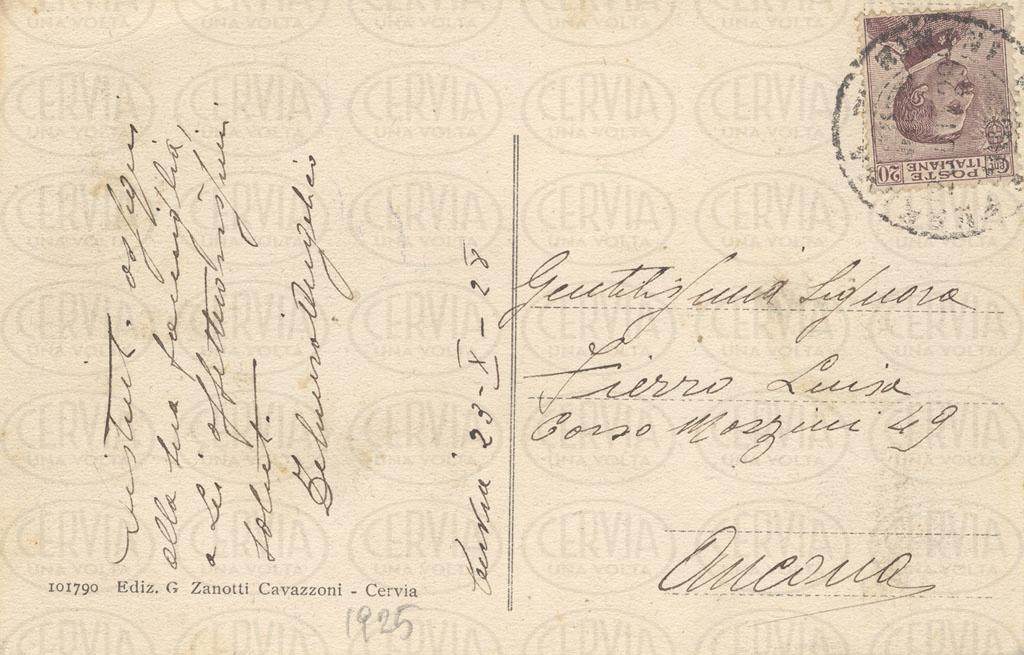 Distint. ossequi
alla sua famiglia
a Lei affettuosissimi
salut.
Cervia 23-X-28
Gentilissima Signora
Fierro Luisa
Corso Mazzini 49
Ancona
20 POSTE ITALIANE Cent
101790 Ediz. G Zanotti Cavazzoni - Cervia
1925
CERVIA
UNA VOLTA